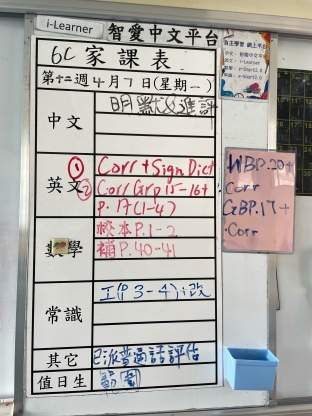 i-Learner 智愛中文平台
6C 家課表
第十二週4月7日(星期一)
中文
明默文進評
英文
① Corr + Sign Dict
② Corr Grp 15-16+
P. 17(1-4)
數學
校本P.1-2
補P.40-41
常識
工(P3-4)i改
其它
已派普通話評估
值日生
WBP.20+
Corr
GBP.17+
Corr
自主學習 網上平台